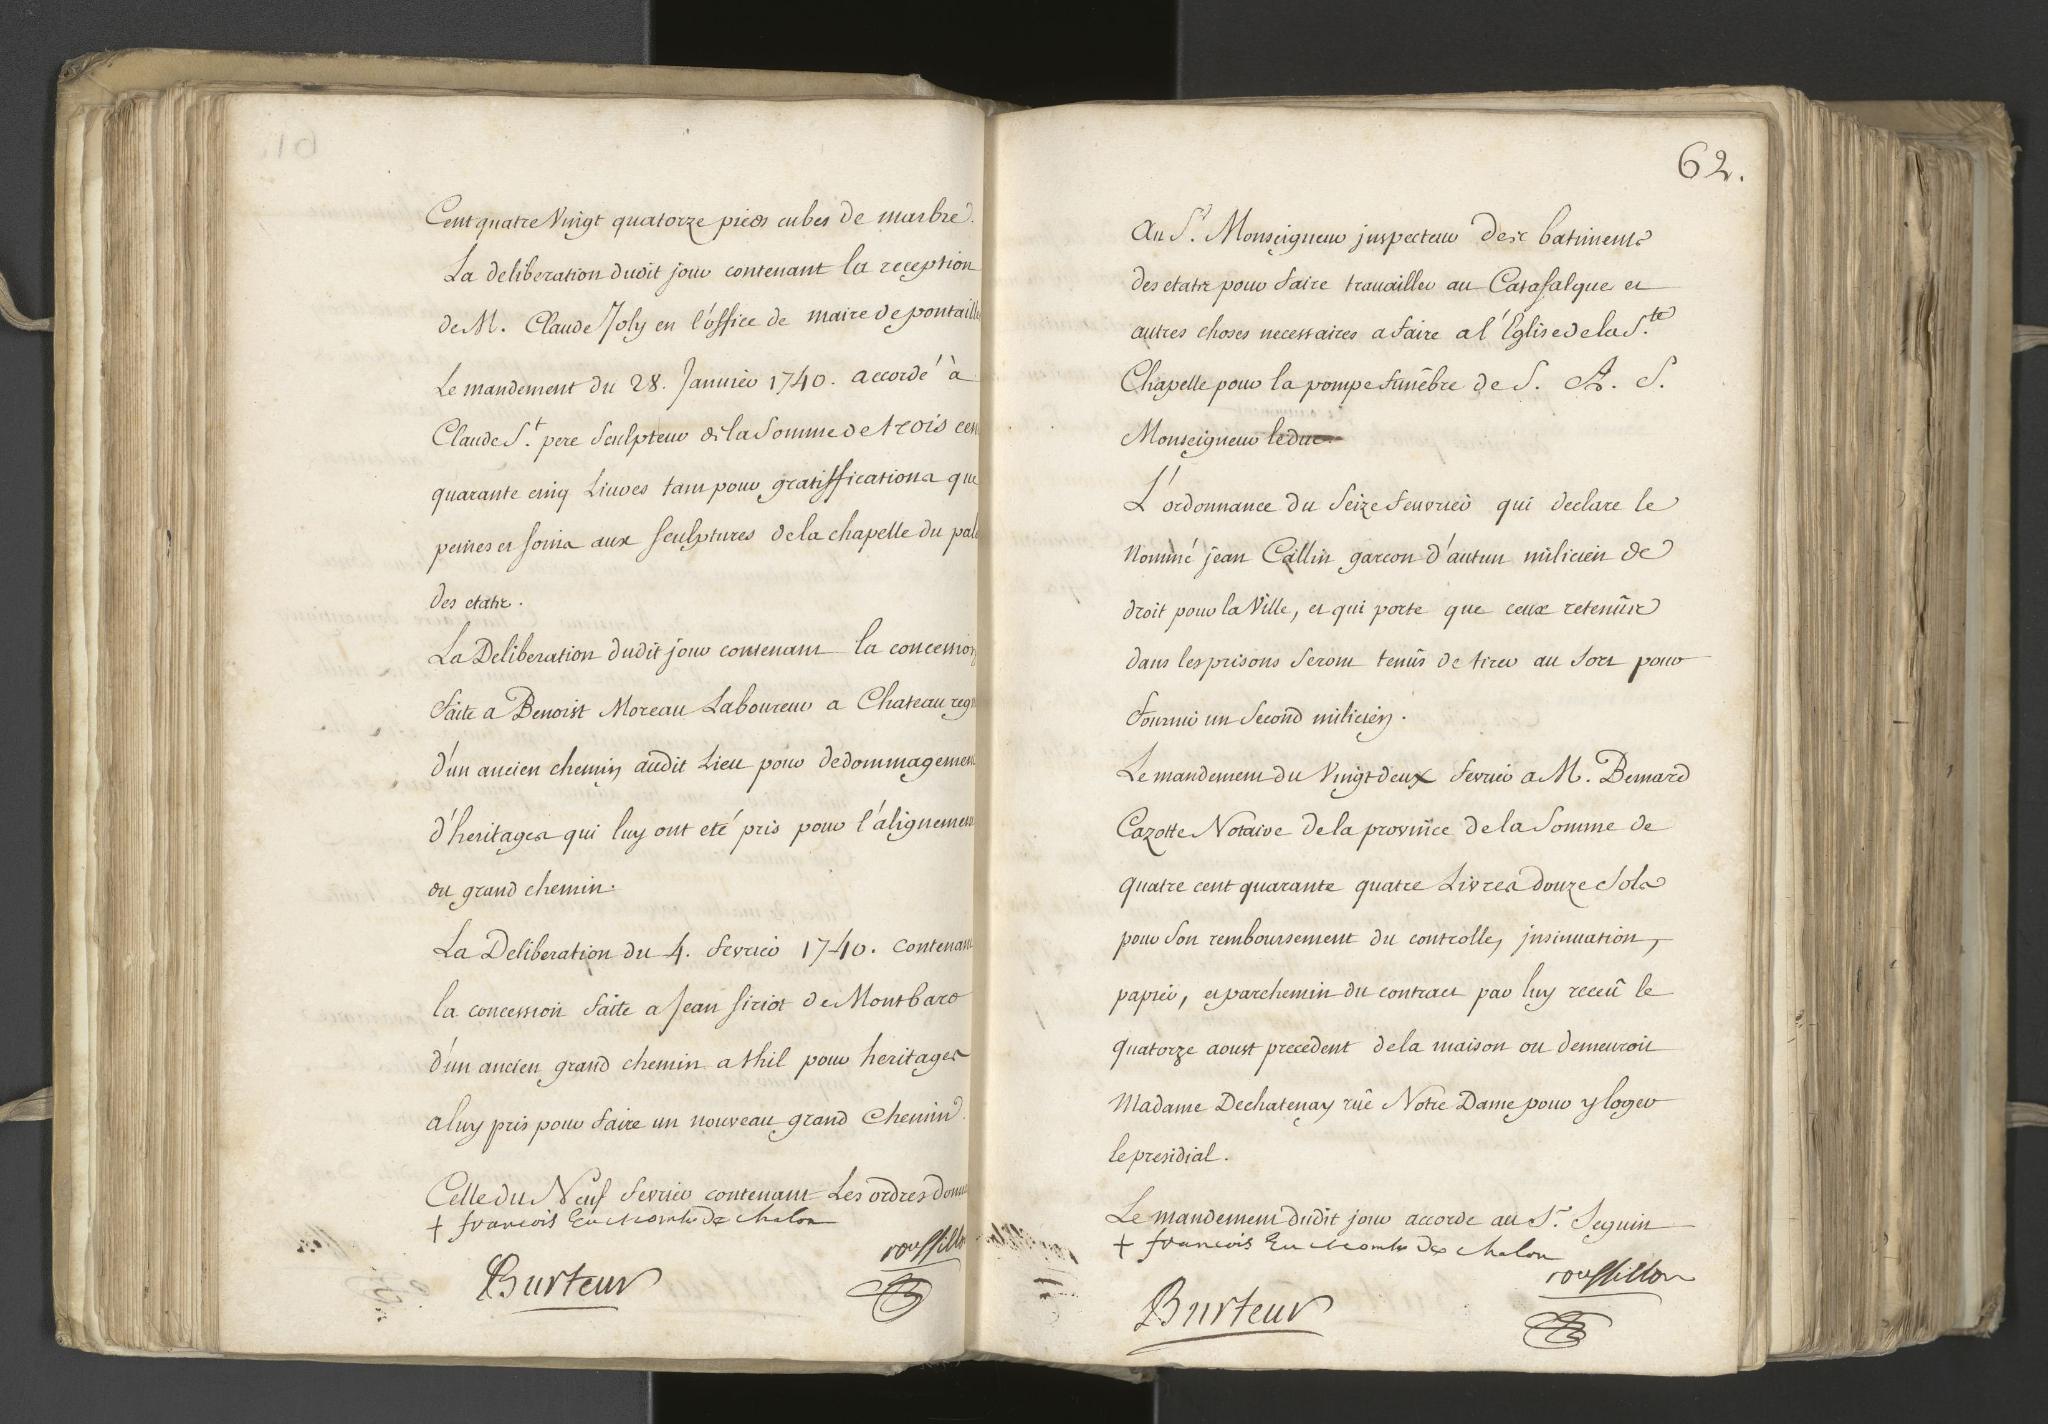 Cent quatre Vingt quatorze pieds cubes de marbre.
La deliberation dudit jour contenant la reception
de M. Claude Joly en l'office de maire de pontaill
Le mandement du 28. Janvier 1740. accordé à
Claude S.t pere Sculpteur de la Somme de trois cen
quarante cinq Livres tant pour gratiffications que
peines et soins aux sculptures de la chapelle du pal
des etats.
La Deliberation dudit jour contenant la concession
faite a Benoist Moreau Laboureur a Chateau regn
d'un ancien chemin audit Lieu pour dedommagemen
d'heritages qui luy ont eté pris pour l'alignemen
du grand chemin.
La Deliberation du 4. fevrier 1740. contenan
la concession faite a Jean siriot de Montbard
d'un ancien grand chemin a thil pour heritages
a luy pris pour faire un nouveau grand Chemin.
Celle du Neuf fevrier contenant Les ordres donn
+ francois Ev de chalon
Burteur
roussillon
62.
au S.r Monseigneur jnspecteur des batiments
des etats pour faire travailler au Catafalque et
autres choses necessaires a faire a l'Eglise de la S.te
Chapelle pour la pompe funêbre de S. A. S.
Monseigneur le duc
L'ordonnance du Seize feuvrier qui declare le
nommé jean Callin garcon d'autun milicien de
droit pour la Ville, et qui porte que ceux retenûs
dans les prisons seront tenûs de tirer au sort pour
fournir un second milicien.
Le mandement du Vingt deux fevrier a M. Bernard
Cazotte Notaire de la province de la Somme de
quatre cent quarante quatre Livres douze Sols
pour son remboursement du controlle, jnsinuation,
papier, et parchemin du contract par luy receû le
quatorze aoust precedent de la maison ou demeuroit
Madame Dechatenay rûe Notre Dame pour y loger
le presidial.
Le mandement dudit jour accordé au S.r Seguin
+ francois Ev de chalon
Burteur
roussillon